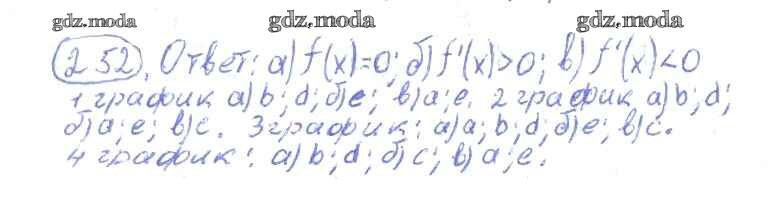 gdz.moda gdz.moda gdz.moda
252. Ответ: а) f(x)=0; б) f'(x)>0; в) f'(x)<0
1 график а) b; d; б) e; в) a; e. 2 график а) b; d;
б) a; e; в) c. 3 график: а) a; b; d; б) e; в) c.
4 график: а) b; d; б) c; в) a; e.